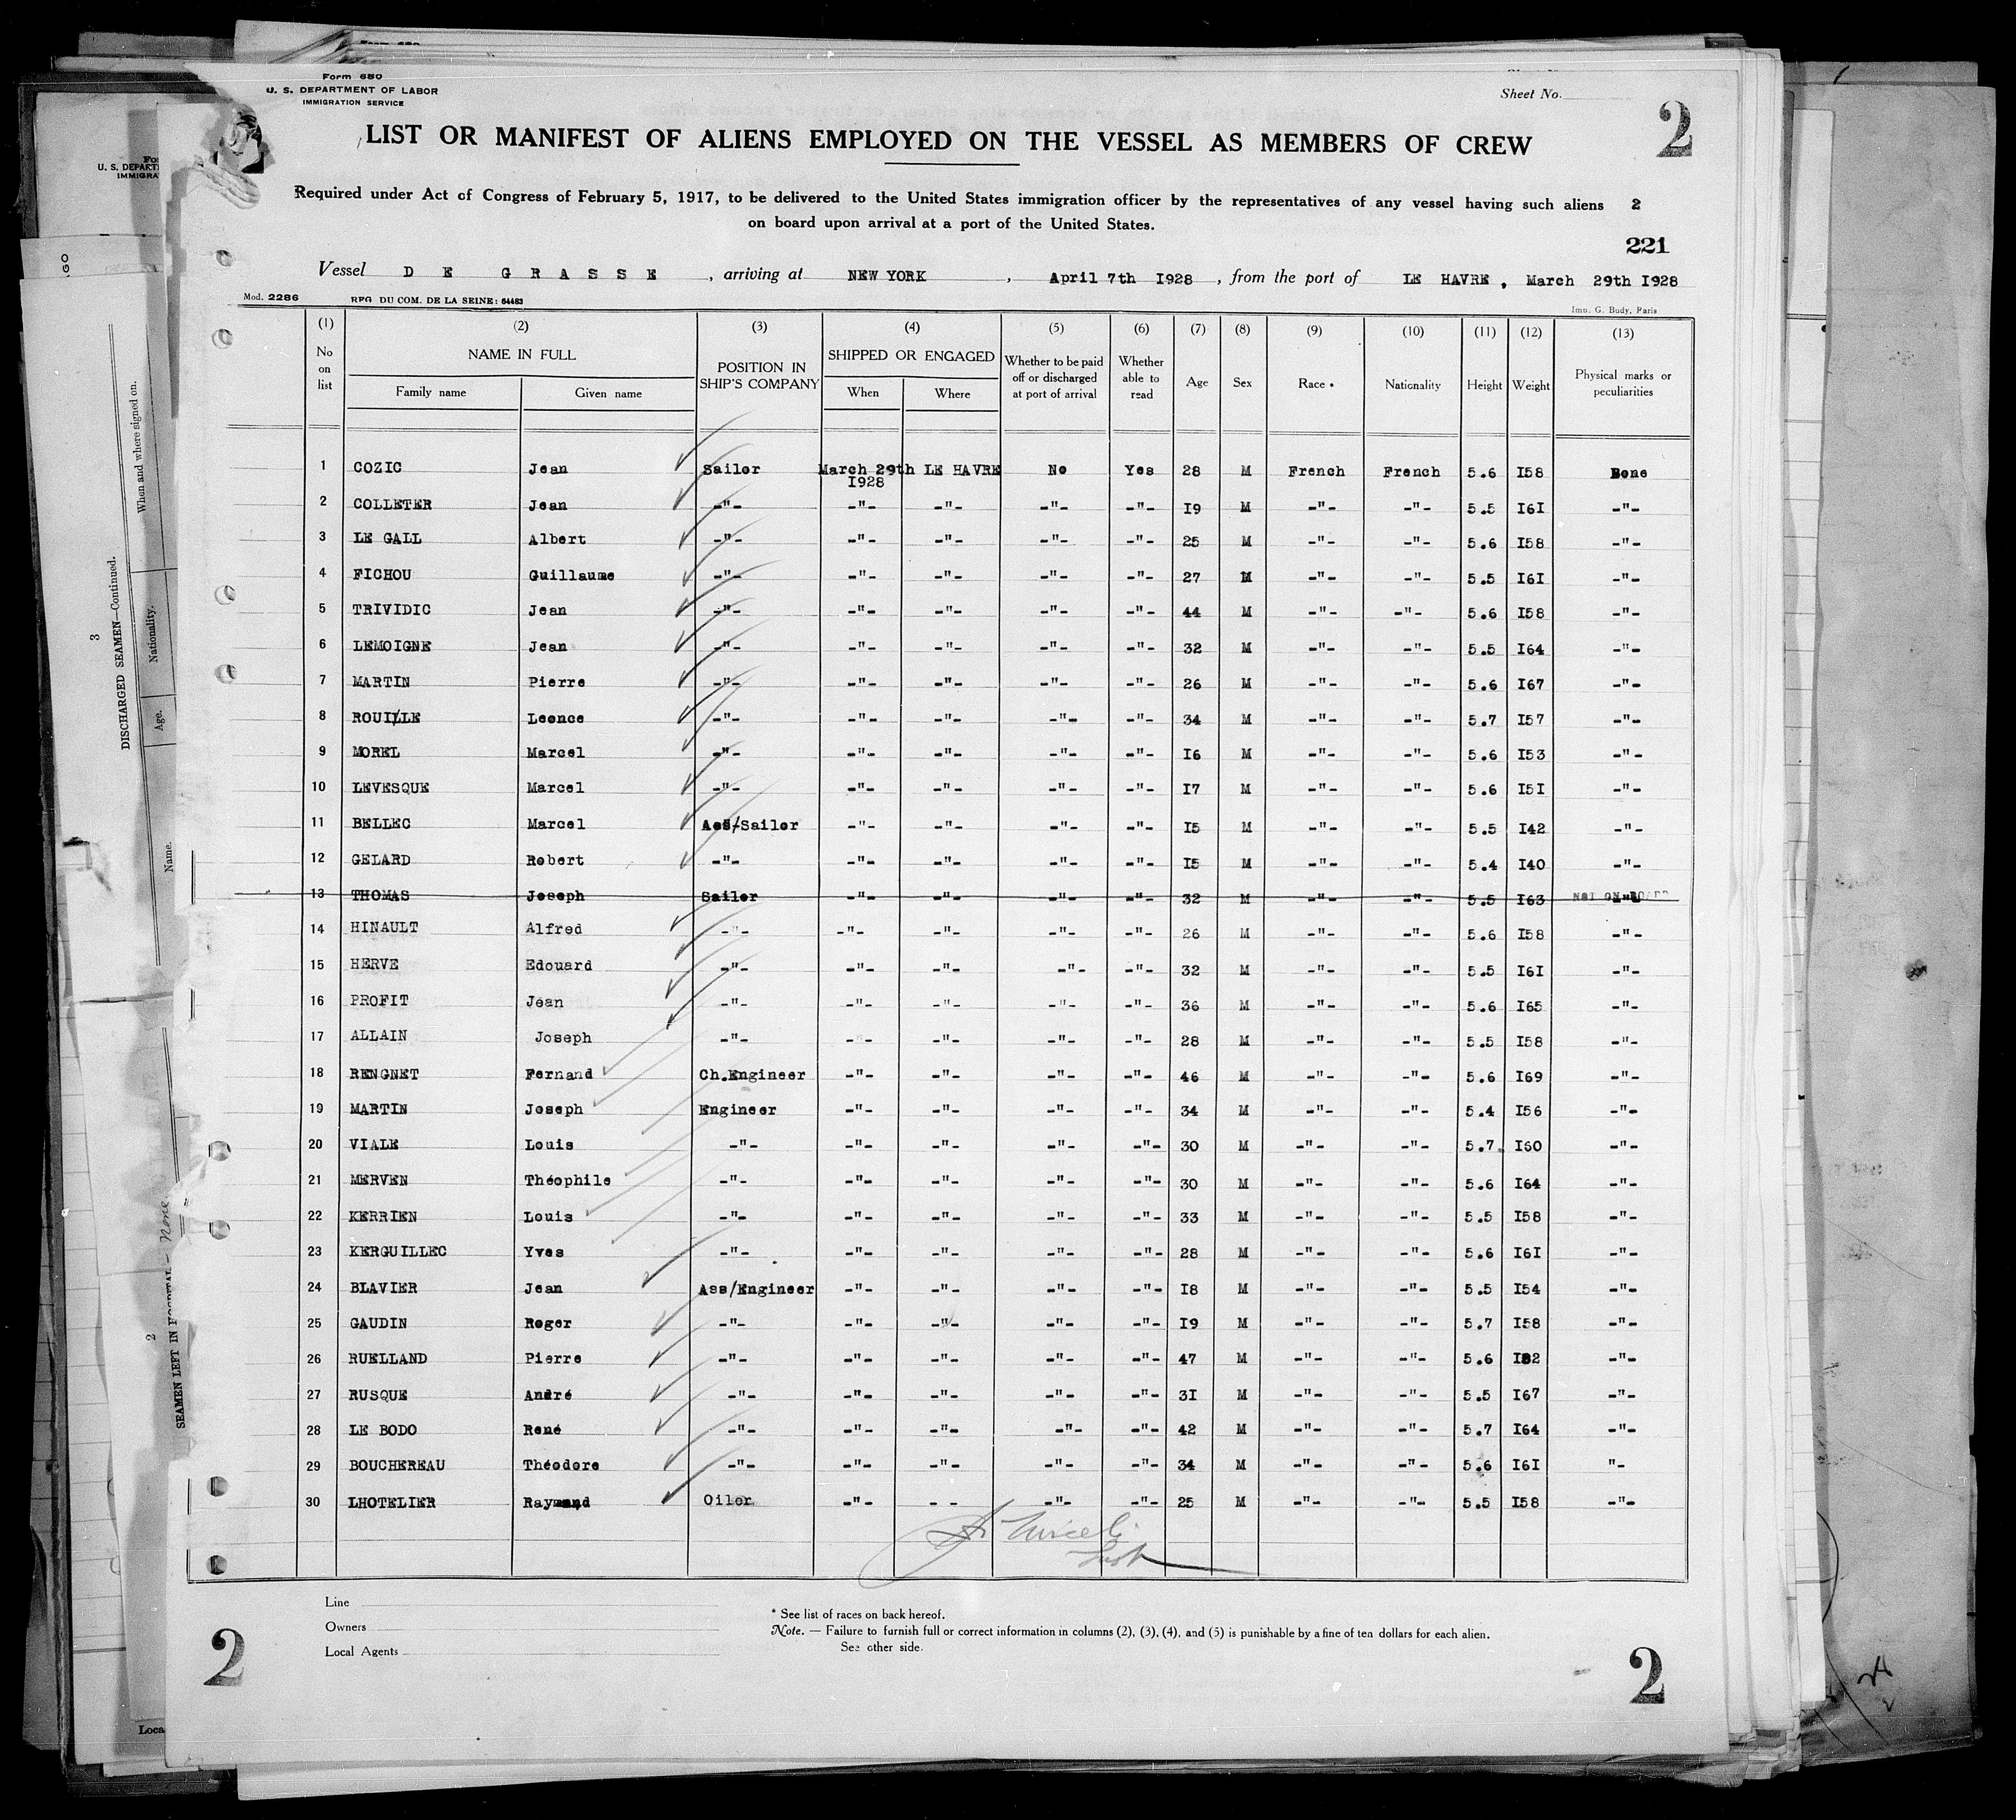 Form 680
U. S. DEPARTMENT OF LABOR
IMMIGRATION SERVICE
Sheet No.
2
LIST OR MANIFEST OF ALIENS EMPLOYED ON THE VESSEL AS MEMBERS OF CREW
Required under Act of Congress of February 5, 1917, to be delivered to the United States immigration officer by the representatives of any vessel having such aliens 2
on board upon arrival at a port of the United States.
221
Vessel D E G R A S S E , arriving at NEW YORK , April 7th I928 , from the port of LE HAVRE , March 29th I928
Mod. 2286 REG DU COM. DE LA SEINE: 64483 Imp. G. Budy, Paris
(1) (2) (3) (4) (5) (6) (7) (8) (9) (10) (11) (12) (13)
No on list NAME IN FULL Family name Given name POSITION IN SHIP'S COMPANY SHIPPED OR ENGAGED When Where Whether to be paid off or discharged at port of arrival Whether able to read Age Sex Race * Nationality Height Weight Physical marks or peculiarities
1 COZIC Jean Sailor March 29th I928 LE HAVRE No Yes 28 M French French 5.6 I58 None
2 COLLETER Jean -"- -"- -"- -"- -"- I9 M -"- -"- 5.5 I6I -"-
3 LE GALL Albert -"- -"- -"- -"- -"- 25 M -"- -"- 5.6 I58 -"-
4 FICHOU Guillaume -"- -"- -"- -"- -"- 27 M -"- -"- 5.5 I6I -"-
5 TRIVIDIC Jean -"- -"- -"- -"- -"- 44 M -"- -"- 5.6 I58 -"-
6 LEMOIGNE Jean -"- -"- -"- -"- -"- 32 M -"- -"- 5.5 I64 -"-
7 MARTIN Pierre -"- -"- -"- -"- -"- 26 M -"- -"- 5.6 I67 -"-
8 ROUILLE Leonce -"- -"- -"- -"- -"- 34 M -"- -"- 5.7 I57 -"-
9 MOREL Marcel -"- -"- -"- -"- -"- I6 M -"- -"- 5.6 I53 -"-
10 LEVESQUE Marcel -"- -"- -"- -"- -"- I7 M -"- -"- 5.6 I5I -"-
11 BELLEC Marcel Ass/Sailor -"- -"- -"- -"- I5 M -"- -"- 5.5 I42 -"-
12 GELARD Robert -"- -"- -"- -"- -"- I5 M -"- -"- 5.4 I40 -"-
13 THOMAS Joseph Sailor -"- -"- -"- -"- 32 M -"- -"- 5.5 I63 NOT ON BOARD
14 HINAULT Alfred -"- -"- -"- -"- -"- 26 M -"- -"- 5.6 I58 -"-
15 HERVE Edouard -"- -"- -"- -"- -"- 32 M -"- -"- 5.5 I6I -"-
16 PROFIT Jean -"- -"- -"- -"- -"- 36 M -"- -"- 5.6 I65 -"-
17 ALLAIN Joseph -"- -"- -"- -"- -"- 28 M -"- -"- 5.5 I58 -"-
18 RENGNET Fernand Ch.Engineer -"- -"- -"- -"- 46 M -"- -"- 5.6 I69 -"-
19 MARTIN Joseph Engineer -"- -"- -"- -"- 34 M -"- -"- 5.4 I56 -"-
20 VIALE Louis -"- -"- -"- -"- -"- 30 M -"- -"- 5.7 I60 -"-
21 MERVEN Théophile -"- -"- -"- -"- -"- 30 M -"- -"- 5.6 I64 -"-
22 KERRIEN Louis -"- -"- -"- -"- -"- 33 M -"- -"- 5.5 I58 -"-
23 KERGUILLEC Yves -"- -"- -"- -"- -"- 28 M -"- -"- 5.6 I6I -"-
24 BLAVIER Jean Ass/Engineer -"- -"- -"- -"- I8 M -"- -"- 5.5 I54 -"-
25 GAUDIN Roger -"- -"- -"- -"- -"- I9 M -"- -"- 5.7 I58 -"-
26 RUELLAND Pierre -"- -"- -"- -"- -"- 47 M -"- -"- 5.6 I82 -"-
27 RUSQUE André -"- -"- -"- -"- -"- 3I M -"- -"- 5.5 I67 -"-
28 LE BODO René -"- -"- -"- -"- -"- 42 M -"- -"- 5.7 I64 -"-
29 BOUCHEREAU Théodore -"- -"- -"- -"- -"- 34 M -"- -"- 5.6 I6I "-
30 LHOTELIER Raymond Oiler -"- - - -"- -"- 25 M -"- -"- 5.5 I58 -"-
Line
Owners
Local Agents
* See list of races on back hereof.
Note. — Failure to furnish full or correct information in columns (2), (3), (4), and (5) is punishable by a fine of ten dollars for each alien.
See other side.
2
2
U. S. DEPART
IMMIGRA
When and where signed on.
Nationality.
Age.
Name.
3
DISCHARGED SEAMEN—Continued.
2
SEAMEN LEFT IN HOSPITAL - None
Loca